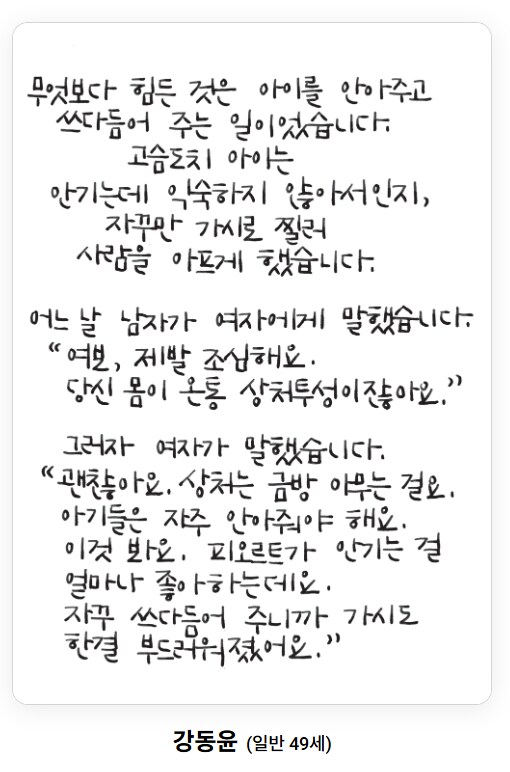 무엇보다 힘든 것은 아이를 안아주고
쓰다듬어 주는 일이었습니다.
고슴도치 아이는
안기는데 익숙하지 않아서인지,
자꾸만 가시로 찔러
사람을 아프게 했습니다.
어느 날 남자가 여자에게 말했습니다.
“여보, 제발 조심해요.
당신 몸이 온통 상처투성이잖아요.”
그러자 여자가 말했습니다.
“괜찮아요. 상처는 금방 아무는 걸요.
아기들은 자주 안아줘야 해요.
이것 봐요. 피오르트가 안기는 걸
얼마나 좋아하는데요.
자꾸 쓰다듬어 주니까 가시도
한결 부드러워졌어요.”
강동윤 (일반 49세)